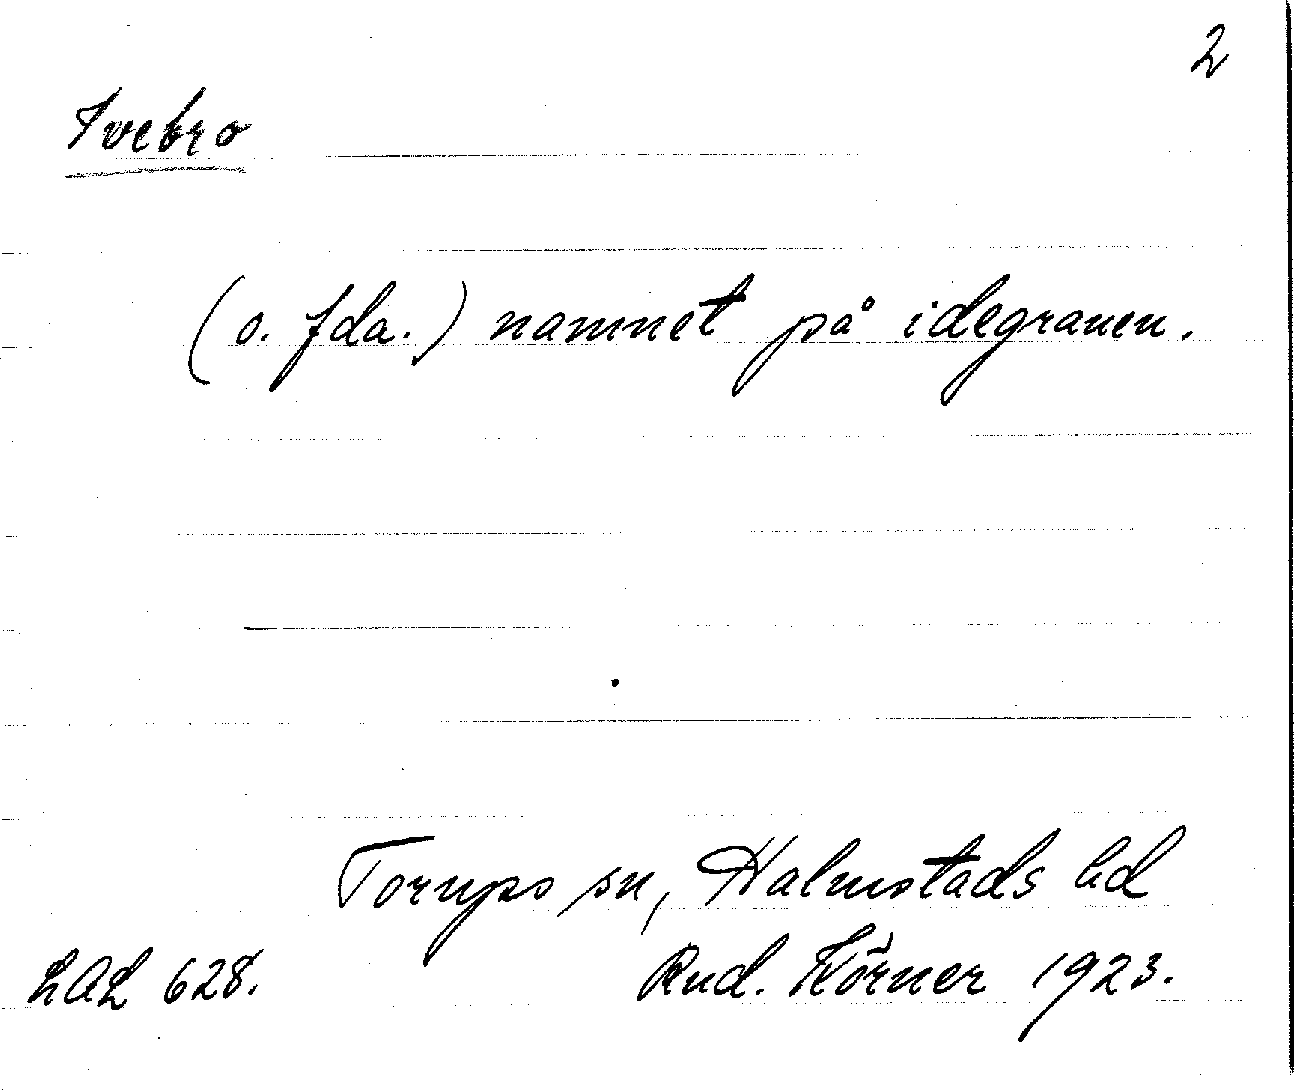 2
Ivebro
(o. fda.) namnet på idegranen.
Torups sn, Halmstads hd
LAL 628.
Rud. Körner 1923.